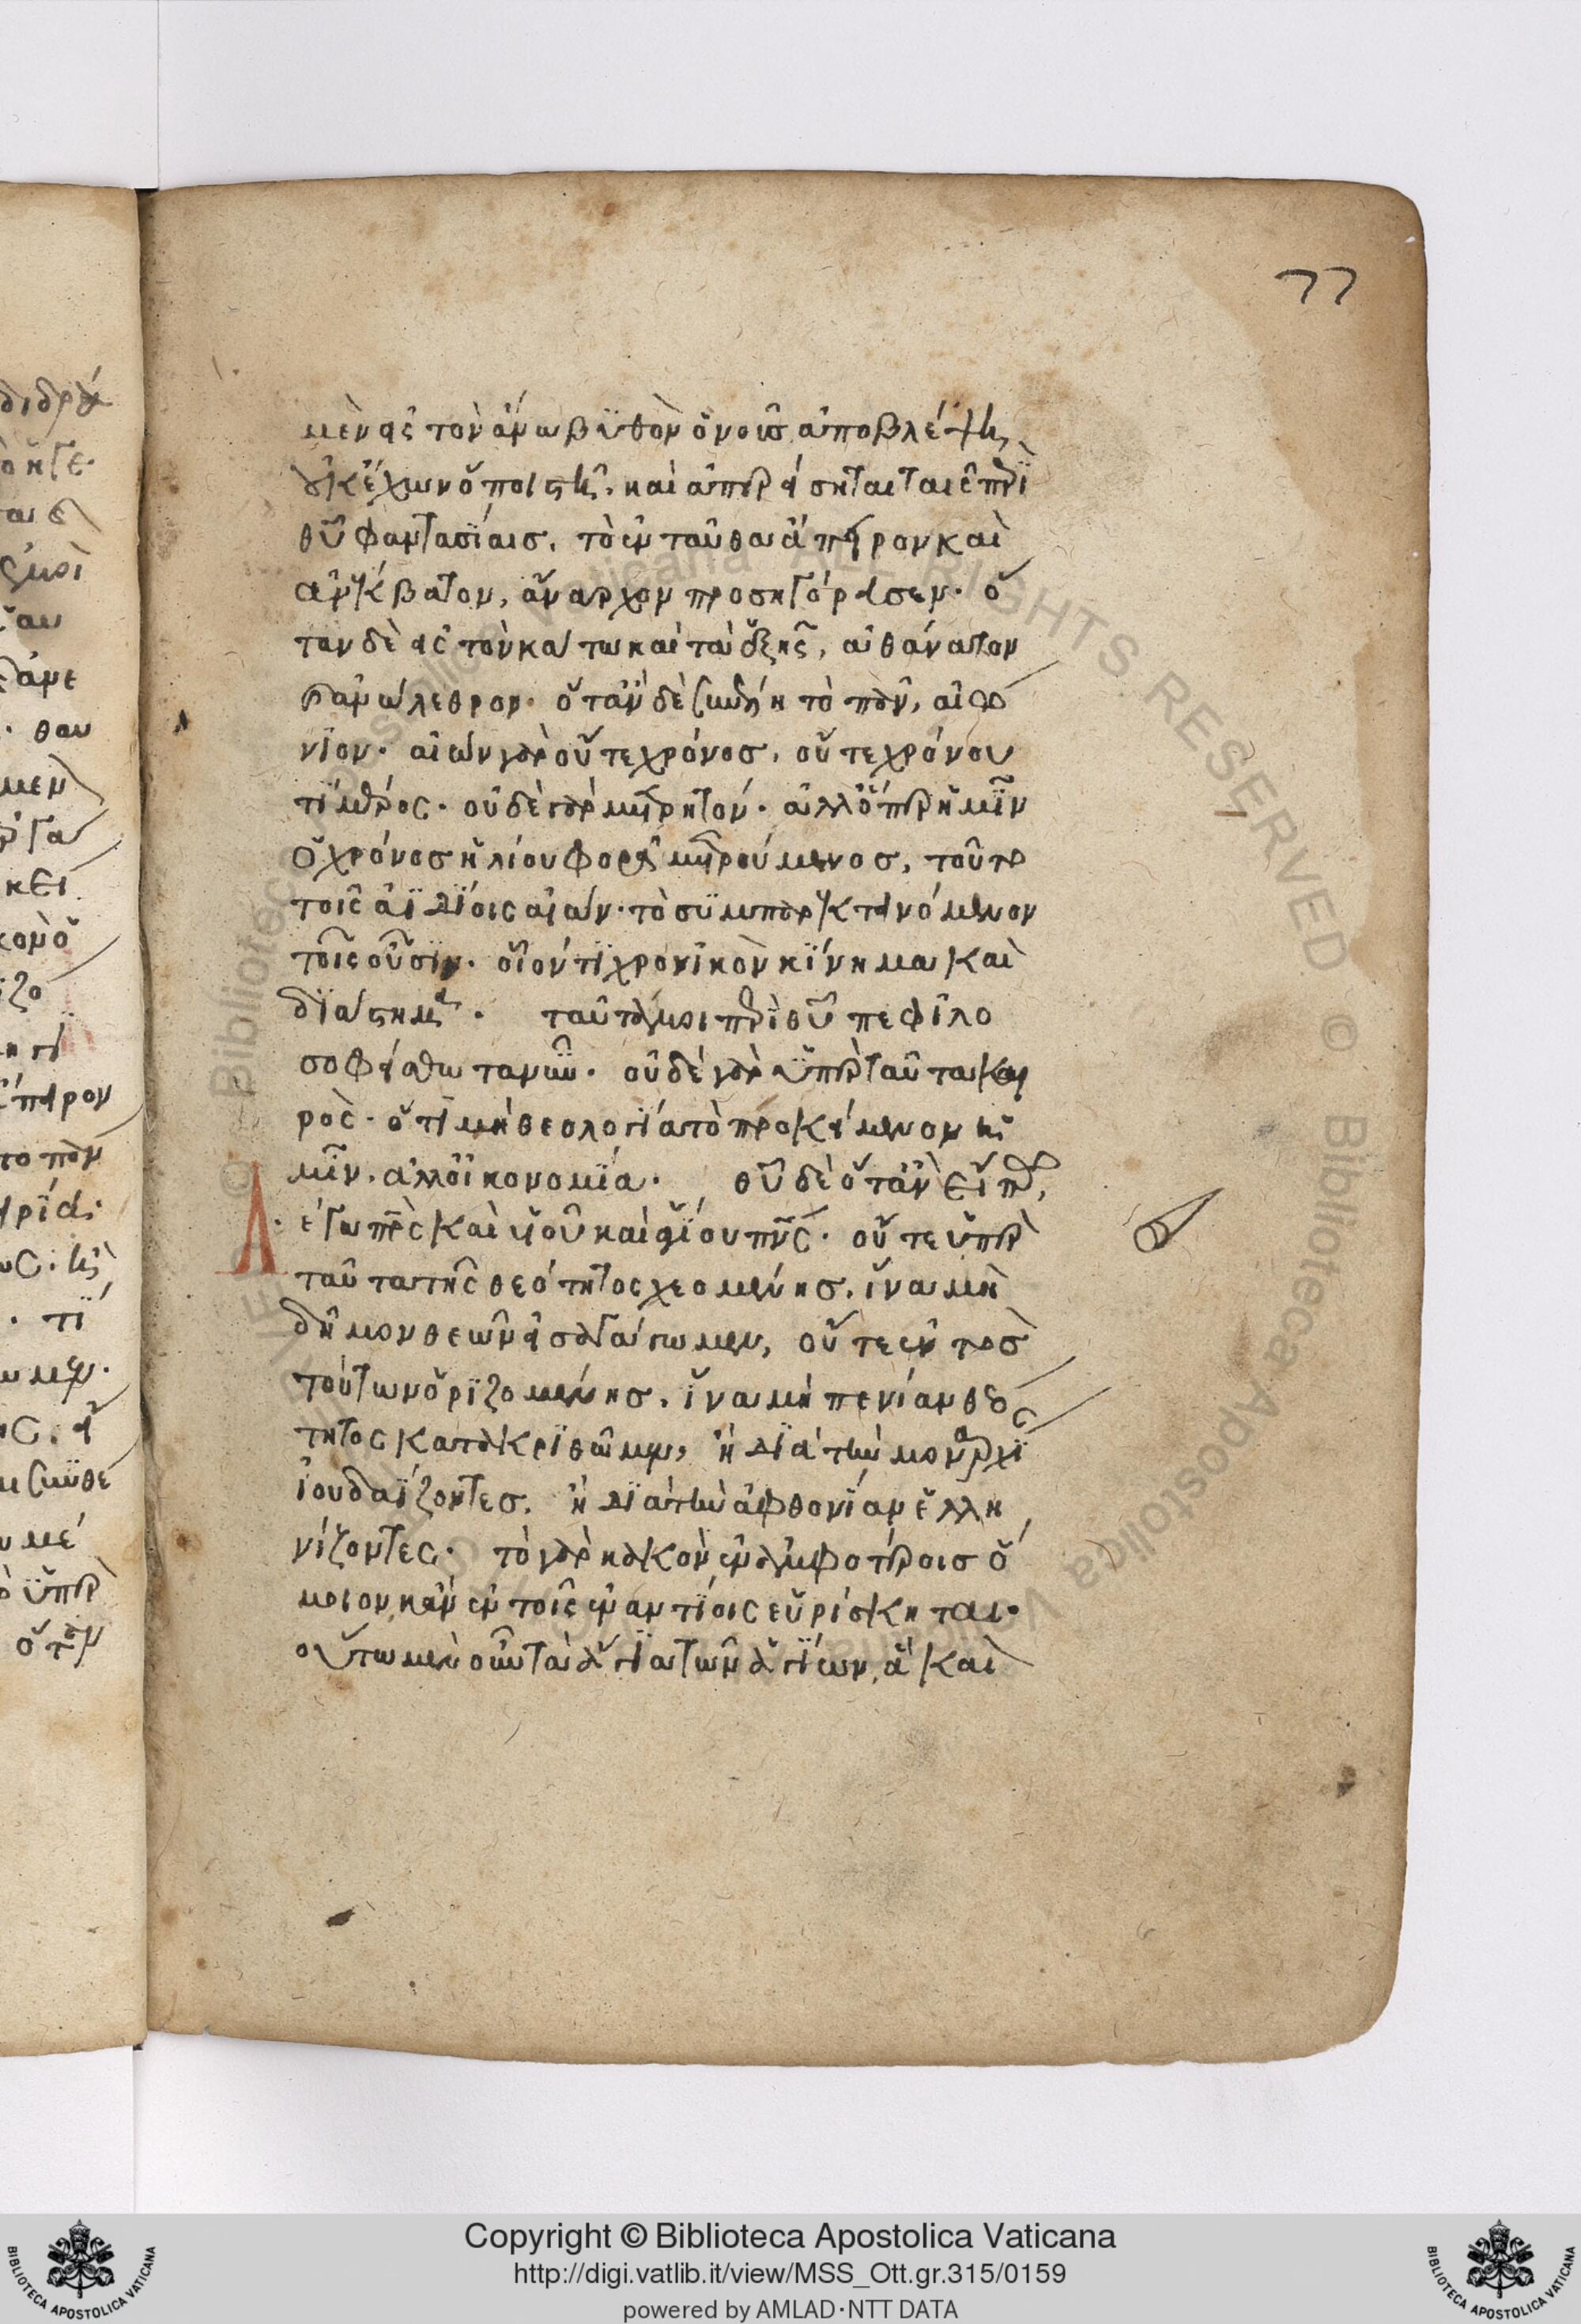 77
μὲν εἰς τὸν ἄνω βυθὸν ὁ νοῦς ἀποβλέψη,
οὐκ ἔχων ὅποι στῆ. καὶ ἀπερείσηται ταῖς περὶ
θῦ φαντασίαις, τὸ ἐνταῦθα ἄπειρον καὶ
ἀνέκβατον, ἄναρχον προσηγόρευσεν. ὅ
ταν δὲ εἰς τὸν κάτω καὶ τὰ ἑξῆς, ἀθάνατον
καὶ ἀνώλεθρον. ὅταν δὲ συνέλη τὸ πᾶν, αἰώ
νιον. αἰὼν γὰρ οὔτε χρόνος, οὔτε χρόνου
τὶ μέρος. οὐδὲ γὰρ μετρητόν. ἀλλ' ὅπερ ἡμῖν
ὁ χρόνος ἡλίου φορᾶ μετρούμενος, τοῦτο
τοῖς ἀϊδίοις αἰὼν. τὸ συμπαρεκτεινόμενον
τοῖς οὖσιν. οἷόν τι χρονικὸν κίνημα καὶ
διάστημα. ταῦτά μοι περὶ θῦ πεφιλο
σοφείσθω τανῦν. οὐδὲ γὰρ ὑπὲρ ταῦτα και
ρὸς. ὅτι μὴ θεολογία τὸ προκείμενον ἡ
μῖν. ἀλλ' οἰκονομία. θῦ δὲ ὅταν εἴπω,
λέγω πρς καὶ υἱοῦ καὶ ἁγίου πνς. οὔτε ὑπὲρ
ταῦτα τῆς θεότητος χεομένης, ἵνα μὴ
δῆμον θεῶν εἰσαγάγωμεν, οὔτε ἐντὸς
τούτων ὁριζομένης, ἵνα μὴ πενίαν θεό
τητος κατακριθῶμεν, ἢ διὰ τὴν μοναρχί
ἰουδαΐζοντες, ἢ διὰ τὴν ἀφθονίαν ἑλλη
νίζοντες. τὸ γὰρ κακὸν ἐν ἀμφοτέροις ὅ
μοιον κἂν ἐν τοῖς ἐναντίοις εὑρίσκηται.
οὕτω μὲν οὖν τὰ ἅγια τῶν ἁγίων, ἃ καὶ
Copyright © Biblioteca Apostolica Vaticana
http://digi.vatlib.it/view/MSS_Ott.gr.315/0159
powered by AMLAD·NTT DATA